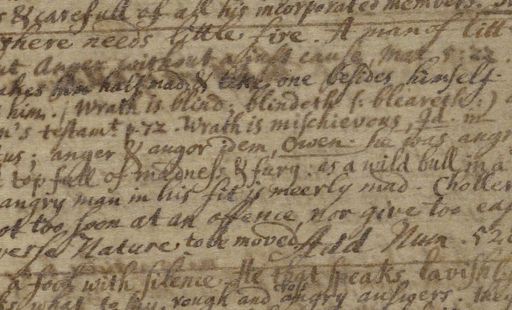 & carefull of all his incorporated members.
there needs little fire. A man of litt
Anger without a just cause Mat. 5:22.
him half mad & take one besides himself.
him. / Wrath is blind; blindeth (: bleareth :)
's testamt p. 72. Wrath is mischievous,
; anger & angor idem, Owen. he was angr
top full of madness & fury; as a wild bull in a
angry man in his fit is meerly mad. Choller
ot too soon at an offence, nor give too ea
verse Nature, to be moved. Add Num. 52
a fool with silence. He that speaks lavishl
what to say, rough and cross angry answers. the